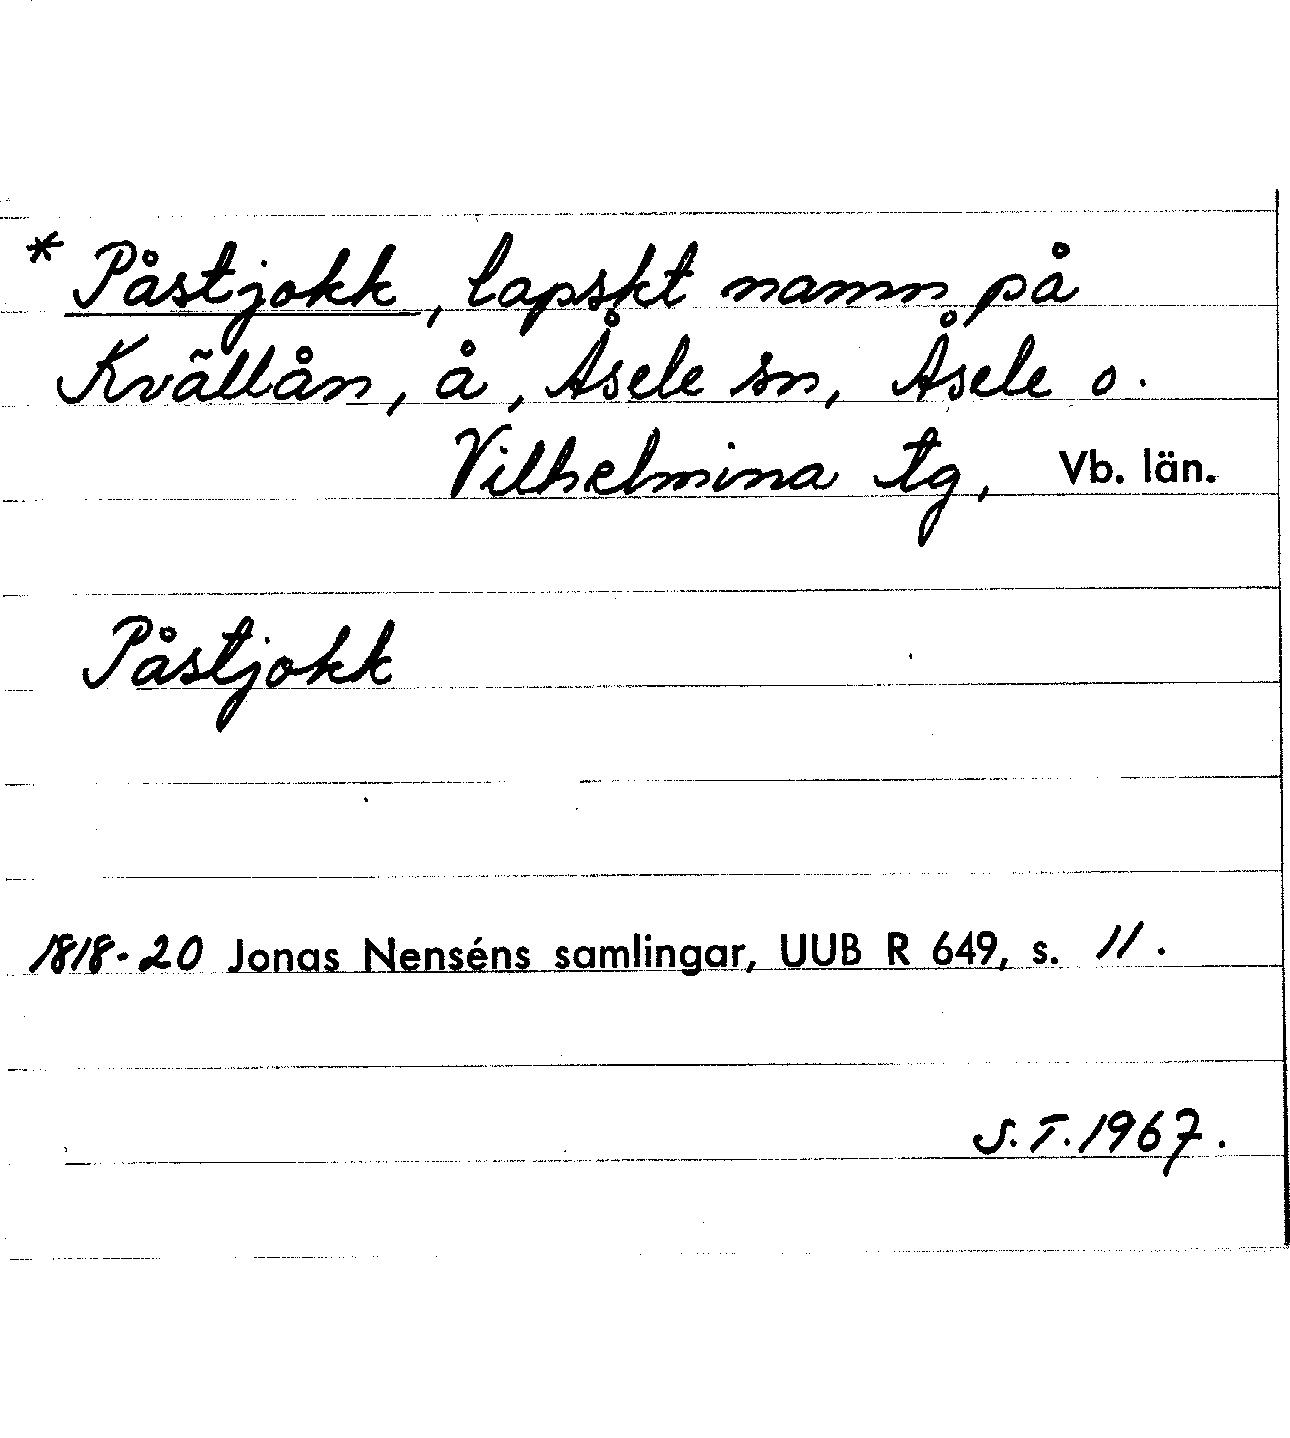 * Påstjokk, lapskt namn på
Kvällån, å, Åsele sn, Åsele o.
Vilhelmina tg, Vb. län.
Påstjokk
1818-20 Jonas Nenséns samlingar, UUB R 649, s. 11.
S.T. 1967.